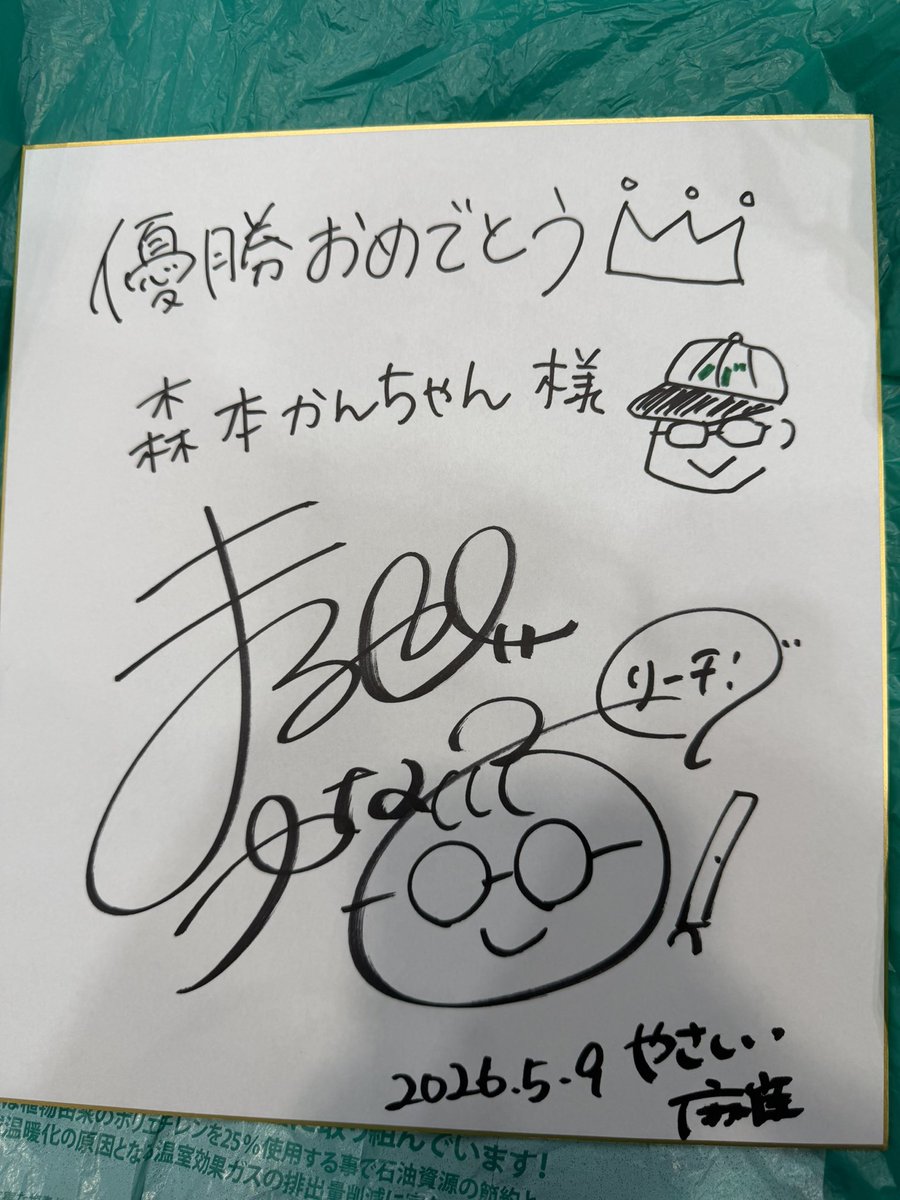 優勝おめでとう
森本かんちゃん 様
バ
リーチ!
2026.5.9 やさしい
麻雀
は植物由来のポリエチレンを25%使用する事で石油資源の節約と
温暖化の原因となる温室効果ガスの排出量削減に
取り組んでいます!